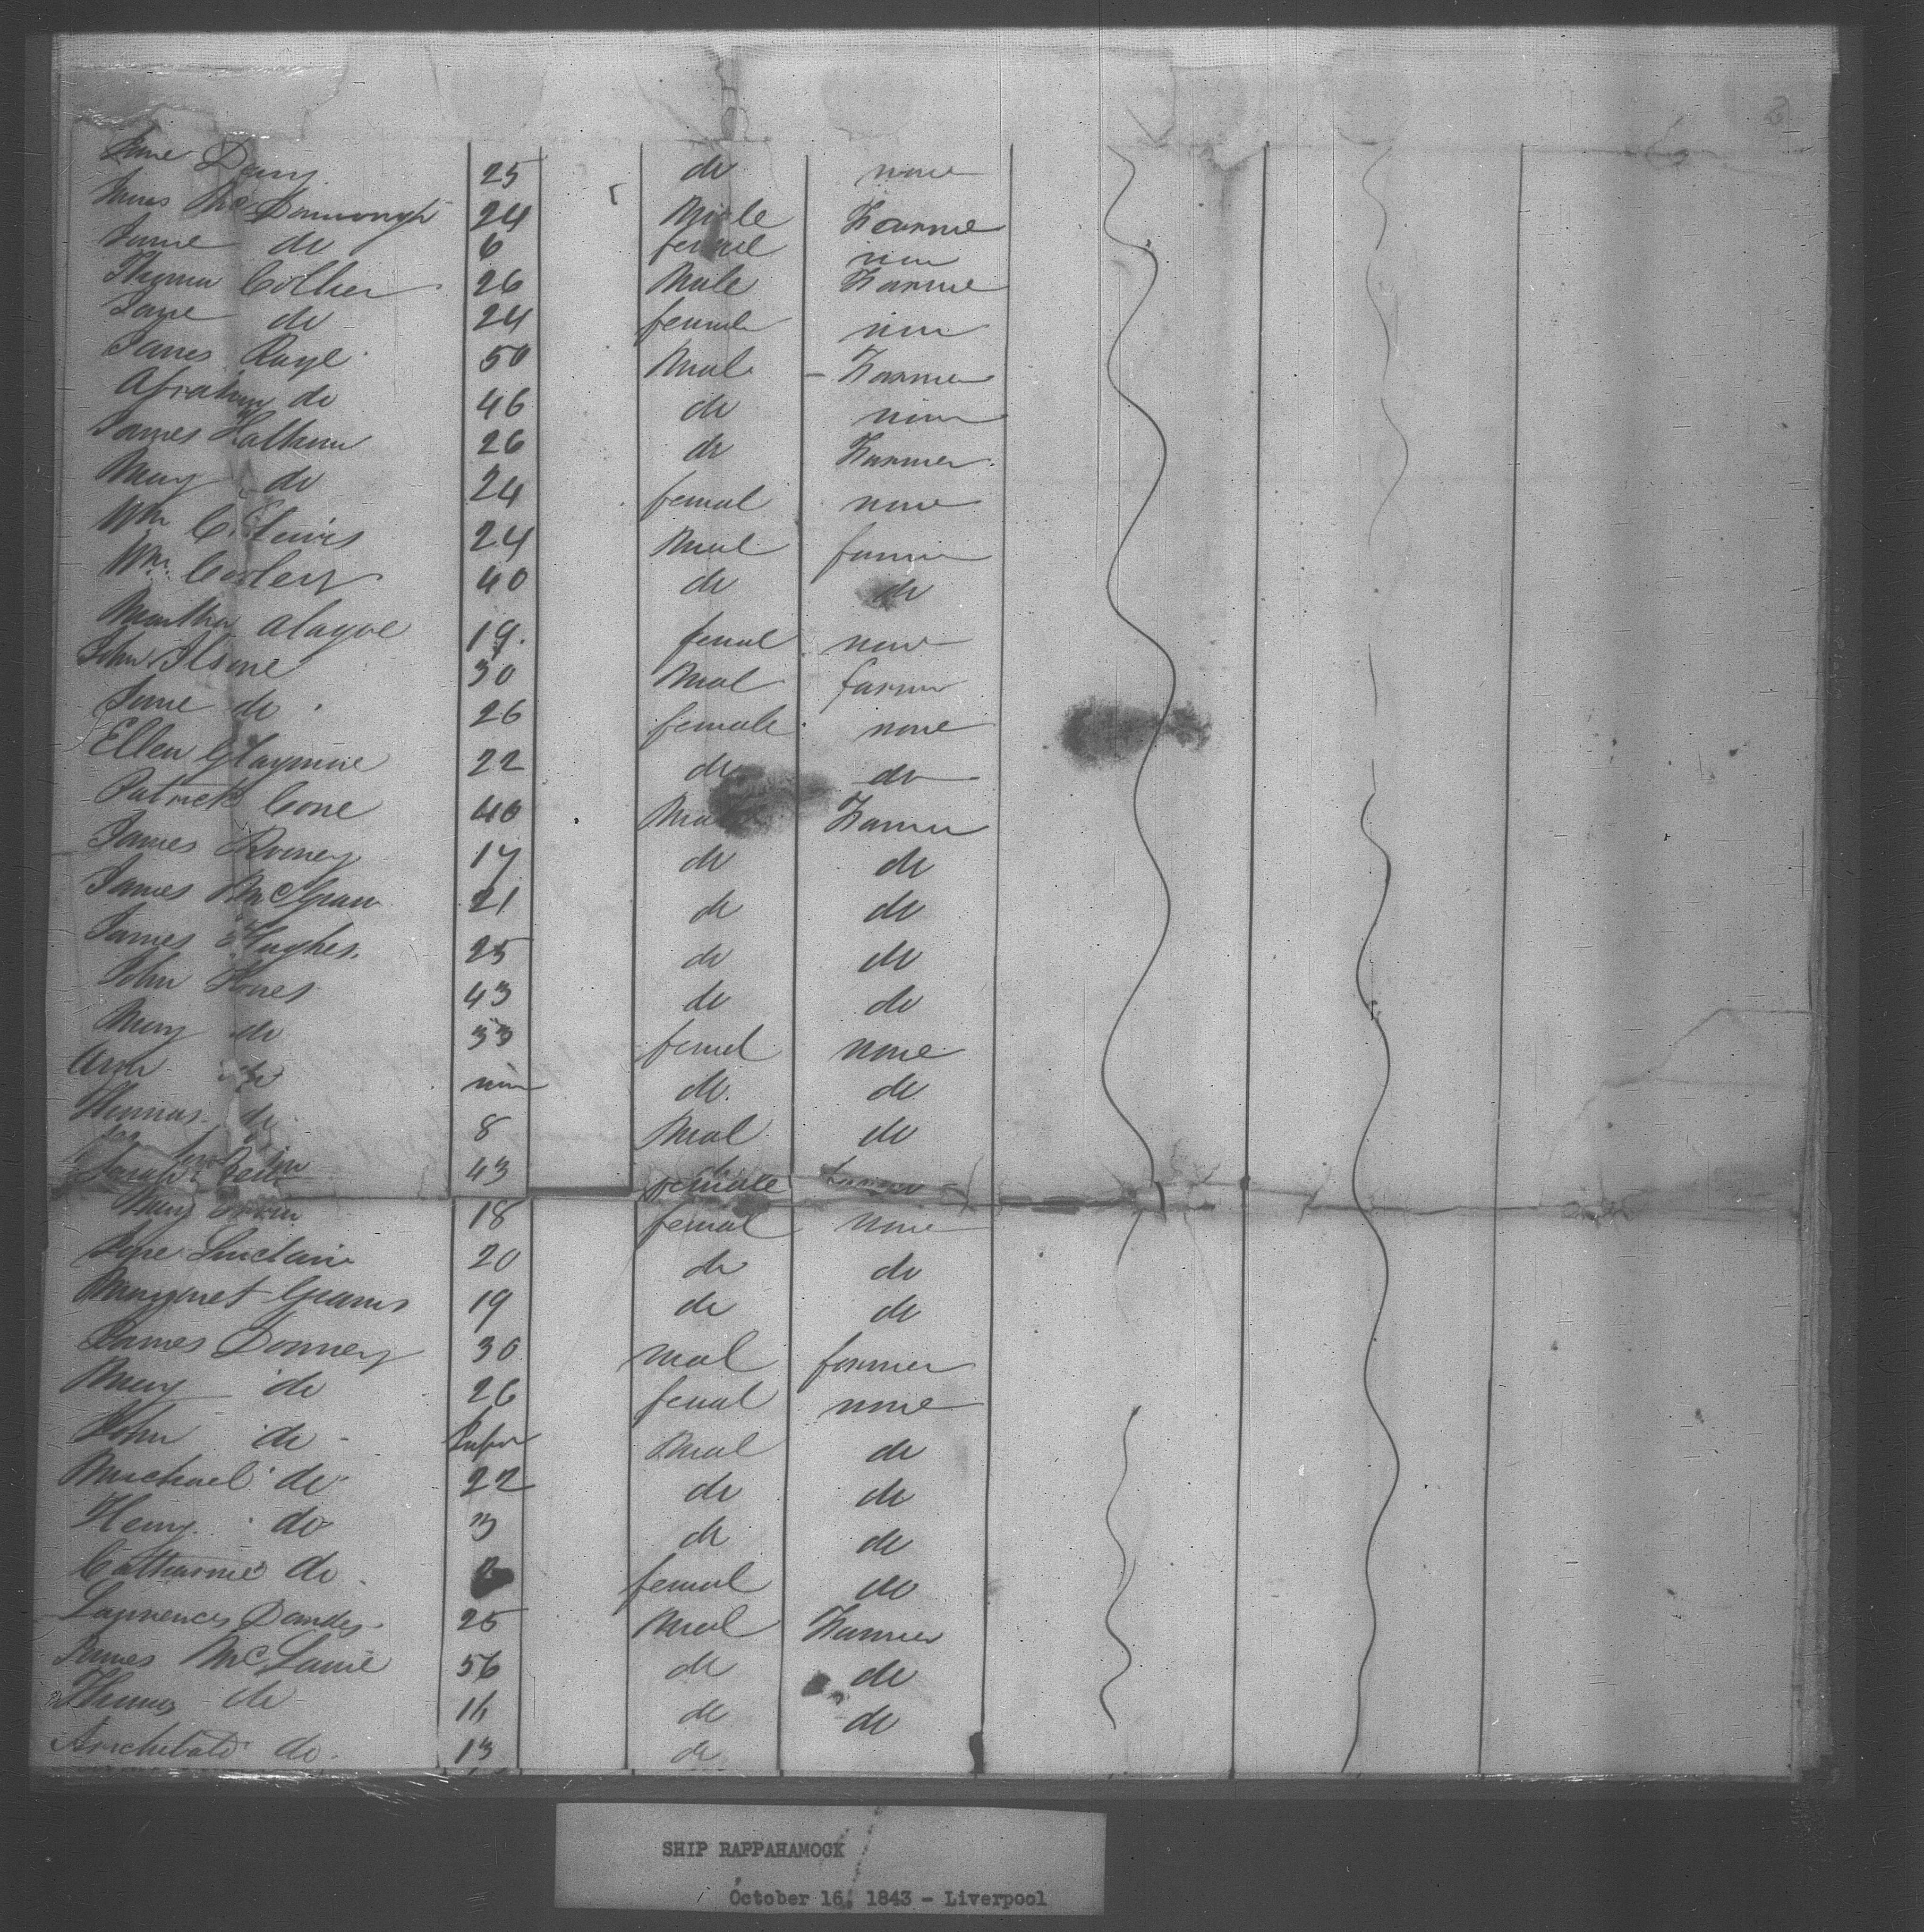 Jane Dany 25 do none
James McDonnough 24 Male Farmer
Jane do 6 femel non
Thomas Collier 26 Male Farmer
Jane do 24 female non
James Rayl 50 Mal Farmer
Abraham do 46 do none
James 26 do Farmer
Mary do 24 femal none
Wm C. Lewis 24 Mal farmer
Wm Corley 40 do do
Martha 19. femal none
John 30 Mal farmer
Jane do 26 female none
Ellen 22 do do
Patrick Cone 40 Male Farmer
James Rooney 17 do do
James McGrau 21 do do
James Hughes. 25 do do
John Jones 43 do do
Mary do 33 femel none
Ann do do. do
Thomas do 8 Mal do
43 female
Mary 18 femal none
Jane Sinclair 20 do do
Margaret 19 do do
James Donnery 30 mal farmer
Mary do 26 femal none
John do Infan Mal do
Michael do 22 do do
Henry do 3 do do
Catharine do femal do
Lawrence 25 Mal Farmer
James McLane 56 do do
Thomas do 16 do do
Archibald do. 13 do
SHIP RAPPAHAMOCK
October 16, 1843 - Liverpool